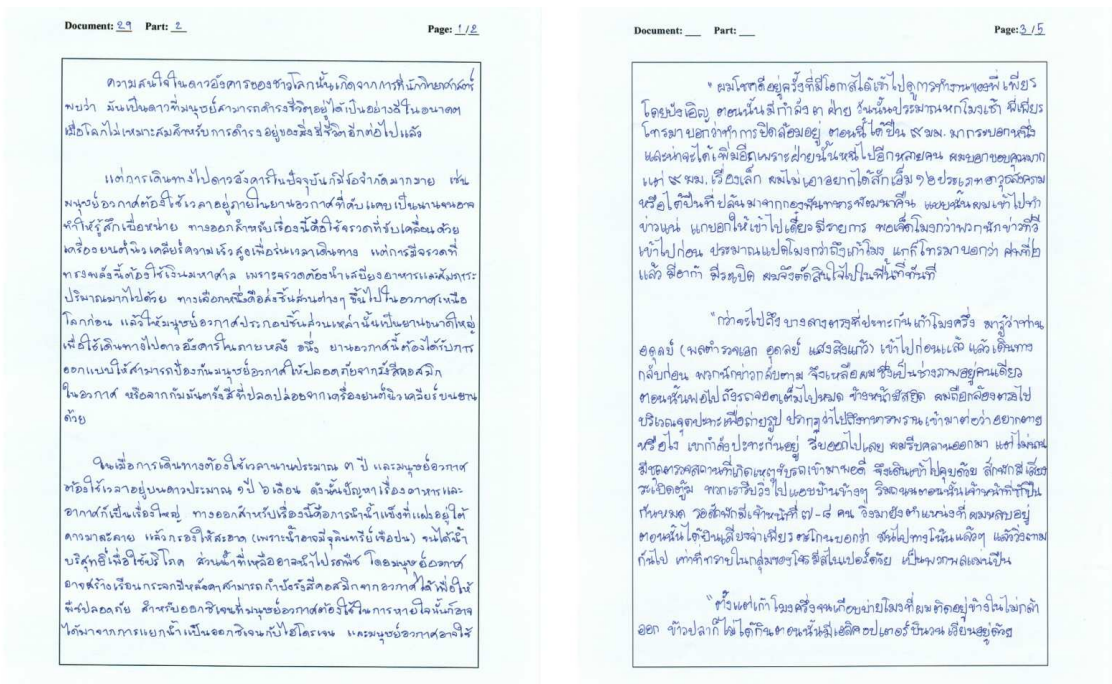 Document: 29 Part: 2 Page: 1/2
ความสนใจในดาวอังคารของชาวโลกนั้นเกิดจากการที่นักวิทยาศาสตร์
พบว่า มันเป็นดาวที่มนุษย์สามารถดำรงชีวิตอยู่ได้เป็นอย่างดีในอนาคต
เมื่อโลกไม่เหมาะสมสำหรับการดำรงอยู่ของสิ่งมีชีวิตอีกต่อไปแล้ว
แต่การเดินทางไปดาวอังคารในปัจจุบันก็มีข้อจำกัดมากมาย เช่น
มนุษย์อวกาศต้องใช้เวลาอยู่ภายในยานอวกาศที่คับแคบเป็นนานจนอาจ
ทำให้รู้สึกเบื่อหน่าย ทางออกสำหรับเรื่องนี้คือใช้จรวดที่ขับเคลื่อนด้วย
เครื่องยนต์นิวเคลียร์ความเร็วสูงเพื่อร่นเวลาเดินทาง แต่การมีจรวดที่
ทรงพลังนี้ต้องใช้เงินมหาศาล เพราะจรวดต้องนำเสบียงอาหารและสัมภาระ
ปริมาณมากไปด้วย ทางเลือกหนึ่งคือส่งชิ้นส่วนต่างๆ ขึ้นไปในอวกาศเหนือ
โลกก่อน แล้วให้มนุษย์อวกาศประกอบชิ้นส่วนเหล่านั้นเป็นยานขนาดใหญ่
เพื่อใช้เดินทางไปดาวอังคารในภายหลัง อนึ่ง ยานอวกาศนี้ต้องได้รับการ
ออกแบบให้สามารถป้องกันมนุษย์อวกาศให้ปลอดภัยจากรังสีคอสมิก
ในอวกาศ หรือจากกัมมันตรังสีที่ปลดปล่อยจากเครื่องยนต์นิวเคลียร์บนยาน
ด้วย
ในเมื่อการเดินทางต้องใช้เวลานานประมาณ ๓ ปี และมนุษย์อวกาศ
ต้องใช้เวลาอยู่บนดาวประมาณ ๑ปี ๖เดือน ดังนั้นปัญหาเรื่องอาหารและ
อากาศก็เป็นเรื่องใหญ่ ทางออกสำหรับเรื่องนี้คือการนำน้ำแข็งที่แฝงอยู่ใต้
ดาวมาละลาย แล้วกรองให้สะอาด (เพราะน้ำอาจมีจุลินทรีย์เจือปน) จนได้น้ำ
บริสุทธิ์เพื่อใช้บริโภค ส่วนน้ำที่เหลืออาจนำไปรดพืช โดยมนุษย์อวกาศ
อาจสร้างเรือนกระจกมีหลังคาสามารถกำบังรังสีคอสมิกจากอวกาศได้เพื่อให้
พืชปลอดภัย สำหรับออกซิเจนที่มนุษย์อวกาศต้องใช้ในการหายใจนั้นก็อาจ
ได้มาจากการแยกน้ำเป็นออกซิเจนกับไฮโดรเจน และมนุษย์อวกาศอาจใช้
Document: Part: Page: 3/5
"ผมโชคดีอยู่ครั้งที่มีโอกาสได้เข้าไปดูการทำงานของพี่เพียร
โดยบังเอิญ ตอนนั้นมีกำลัง ๓ ฝ่าย วันนั้นประมาณหกโมงเช้า พี่เพียร
โทรมาบอกว่าทำการปิดล้อมอยู่ ตอนนี้ได้ปืน ๙ มม. มากระบอกหนึ่ง
และน่าจะได้เพิ่มอีกเพราะฝ่ายนั้นหนีไปอีกหลายคน ผมบอกขอบคุณมาก
แต่ ๙ มม. เรื่องเล็ก ผมไม่เอาอยากได้สักเอ็ม ๑๖ ประเภทอาวุธสงคราม
หรือได้ปืนที่ปล้นมาจากกองพันทหารพัฒนาคืน แบบนั้นผมเข้าไปทำ
ข่าวแน่ แกบอกให้เข้าไปเดี๋ยวมีรายการ พอเจ็ดโมงกว่าพวกนักข่าวทีวี
เข้าไปก่อน ประมาณแปดโมงกว่าถึงเก้าโมง แกก็โทรมาบอกว่า ศพที่๒
แล้ว มีอาก้า มีระเบิด ผมจึงตัดสินใจไปในพื้นที่ทันที
"กว่าจะไปถึงบางลางตรงที่ปะทะกันเก้าโมงครึ่ง มารู้ว่าท่าน
อดุลย์ (พลตำรวจเอก อดุลย์ แสงสิงแก้ว) เข้าไปก่อนแล้ว แล้วเดินทาง
กลับก่อน พวกนักข่าวกลับตาม จึงเหลือผมซึ่งเป็นช่างภาพอยู่คนเดียว
ตอนนั้นพอไปถึงรถจอดเต็มไปหมด ข้างหน้ามัสยิด ผมถือกล้องตรงไป
บริเวณจุดปะทะเพื่อถ่ายรูป ปรากฏว่าไปถึงทหารพรานเข้ามาต่อว่าอยากตาย
หรือไง เขากำลังปะทะกันอยู่ รีบออกไปเลย ผมรีบคลานออกมา แต่ไม่นาน
มีชุดตรวจสถานที่เกิดเหตุขับรถเข้ามาพอดี จึงเดินเข้าไปคุยด้วย สักพักมีเสียง
ระเบิดตู้ม พวกเรารีบวิ่งไปแอบบ้านข้างๆ ริมถนนตอนนั้นเจ้าหน้าที่ชักปืน
กันหมด รอสักพักมีเจ้าหน้าที่ ๗-๘ คน วิ่งมายังตำแหน่งที่ผมหลบอยู่
ตอนนั้นได้ยินเสียงจ่าเพียรตะโกนบอกว่า ชนไปทางโน้นแล้วๆ แล้ววิ่งตาม
กันไป เท่าที่ทราบในกลุ่มของโจรมีสไนเปอร์ด้วย เป็นพวกพลแม่นปืน
"ตั้งแต่เก้าโมงครึ่งจนเกือบบ่ายโมงที่ผมติดอยู่ข้างในไม่กล้า
ออก ข้าวปลาก็ไม่ได้กินตอนนั้นมีเฮลิคอปเตอร์บินวนเวียนอยู่ด้วย